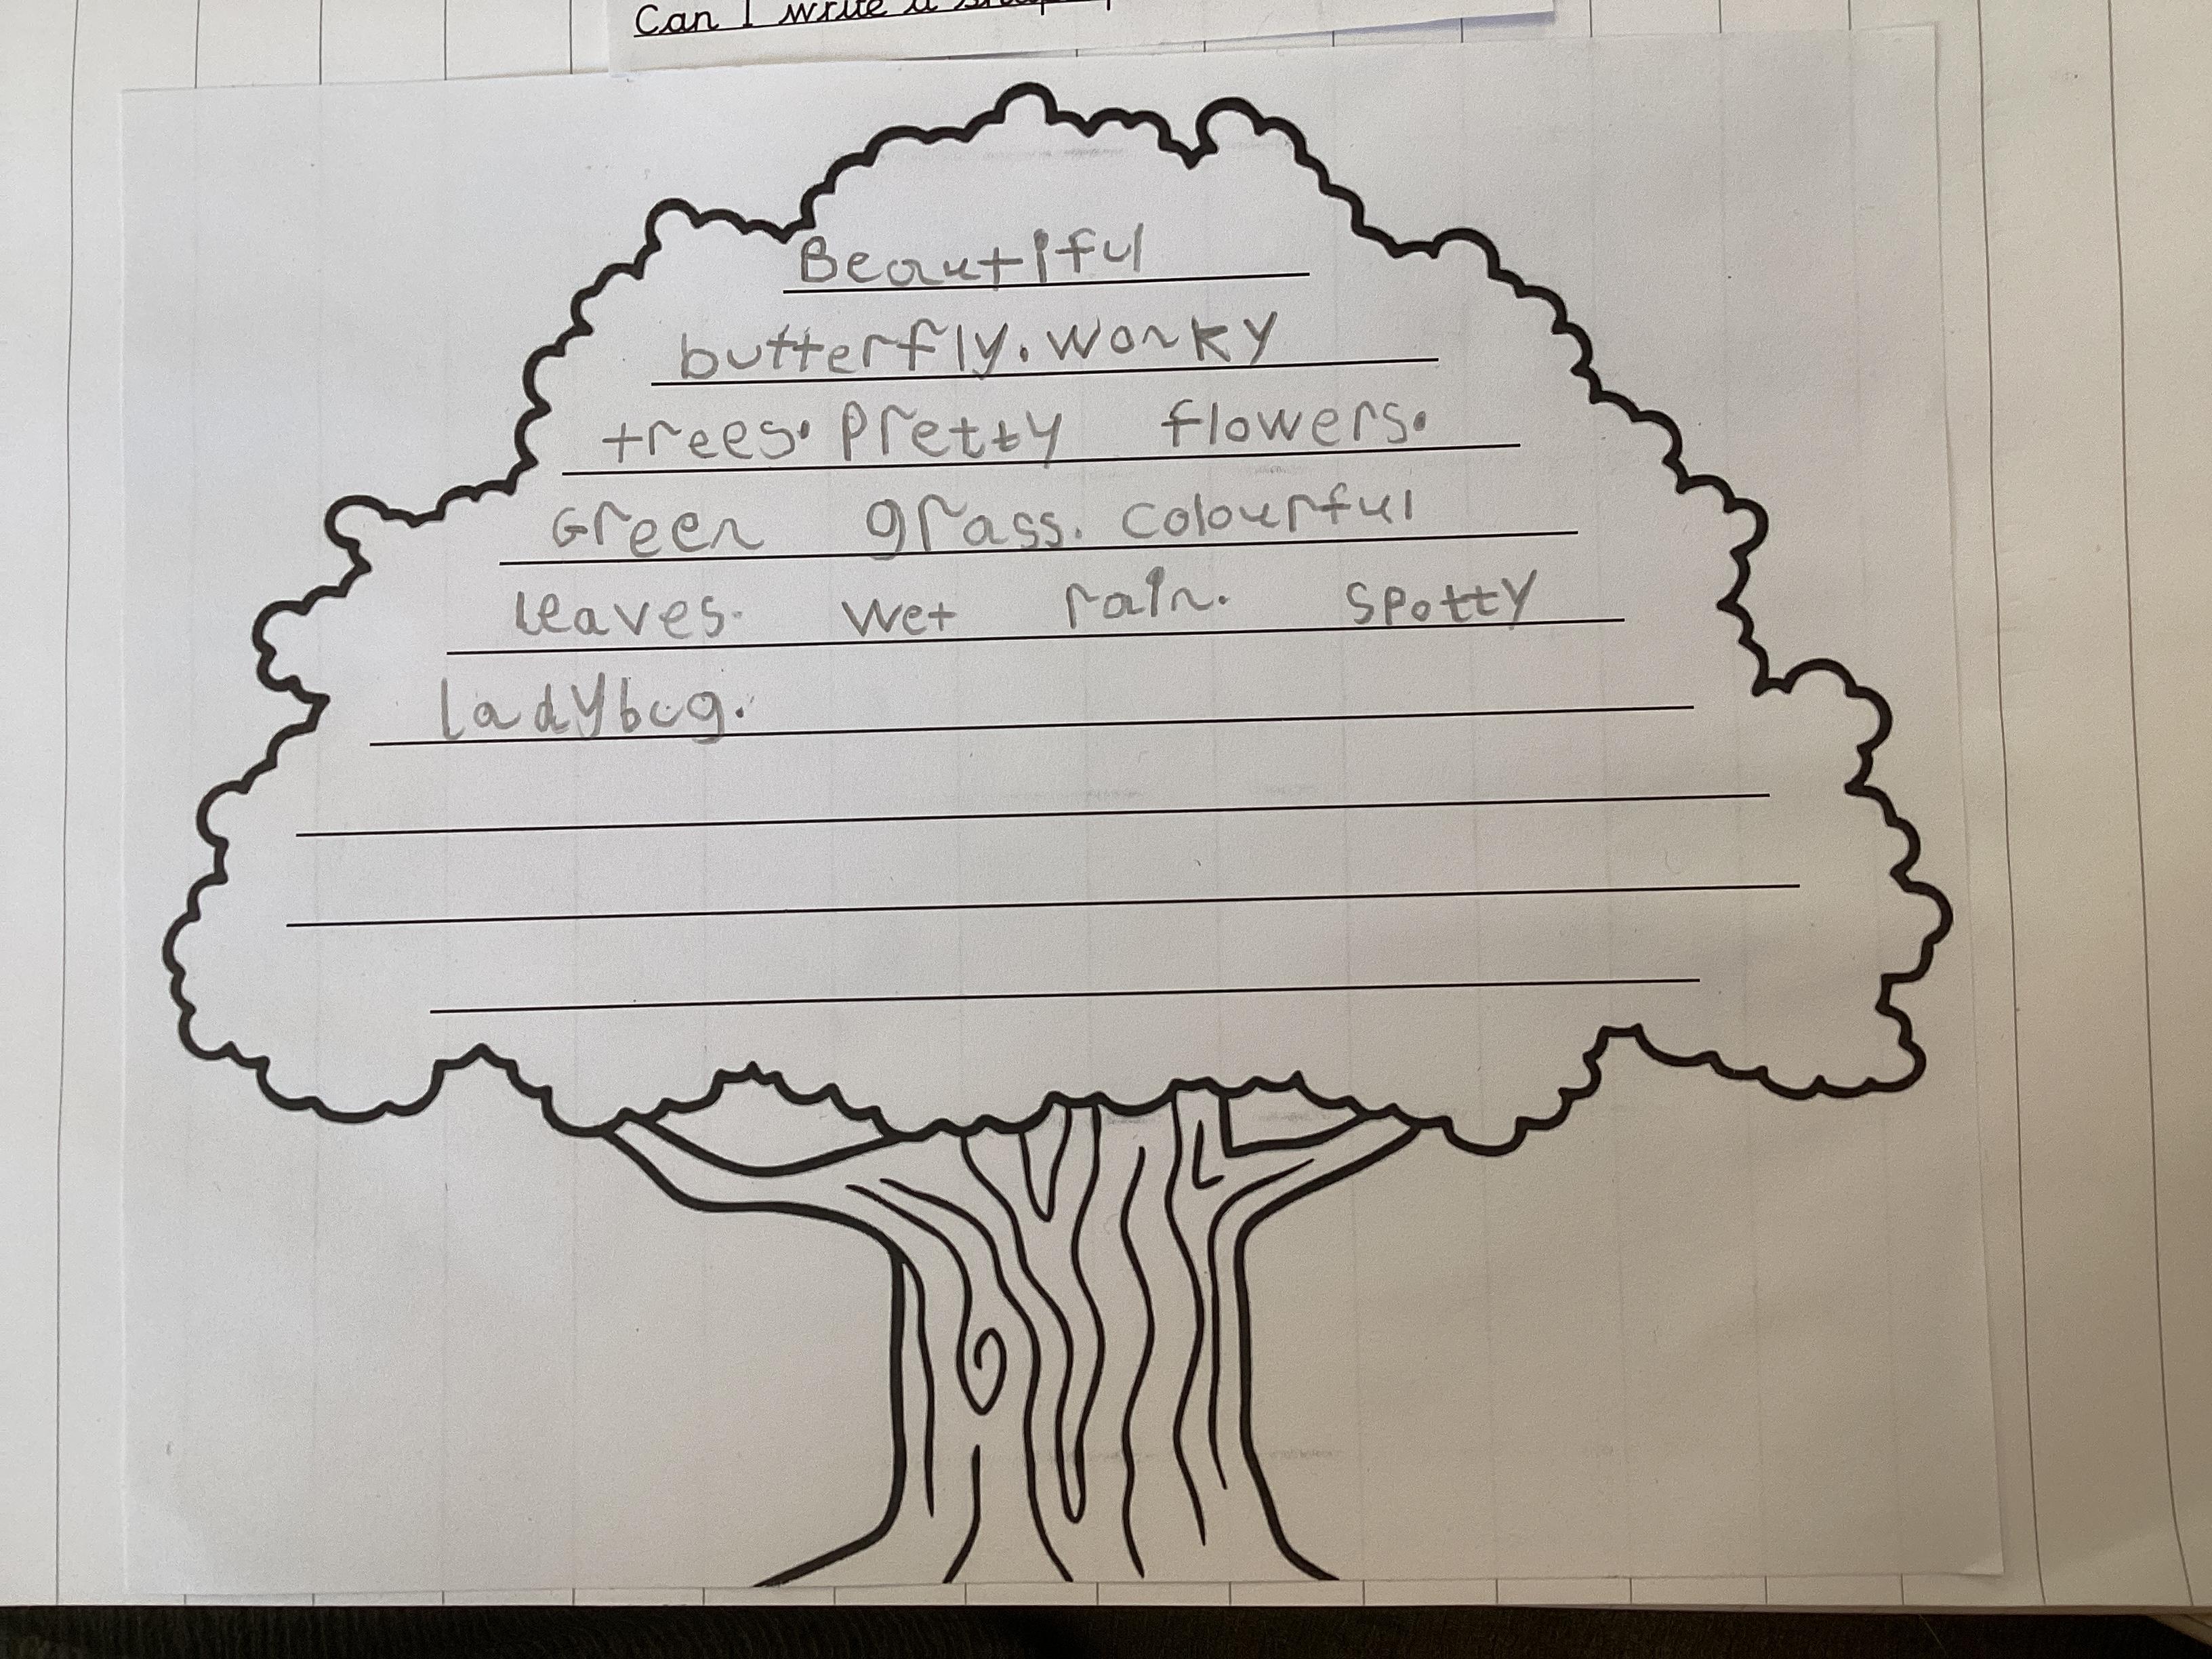 Can I write a
Beautiful
butterfly. Wonky
trees. Pretty flowers.
Green grass. Colourful
leaves. Wet rain. Spotty
ladybug.